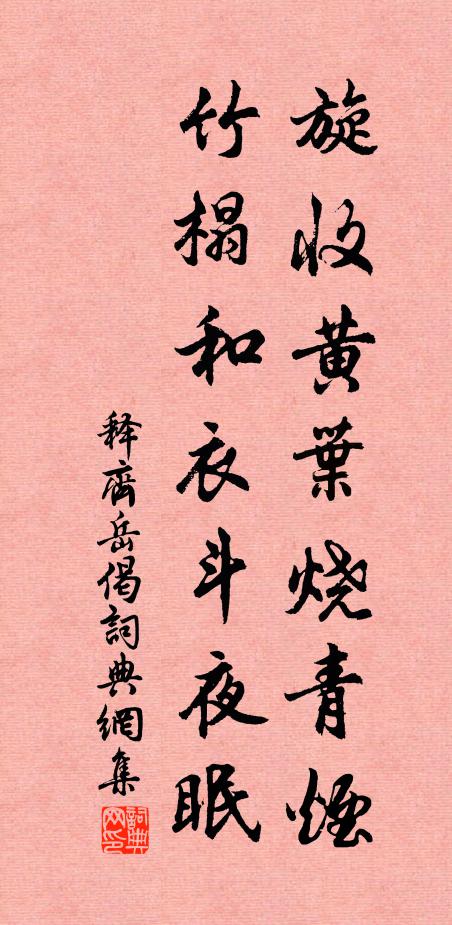 旋收黄葉烧青煙
竹榻和衣斗夜眠
释齊岳偈詞典網集
詞典网印